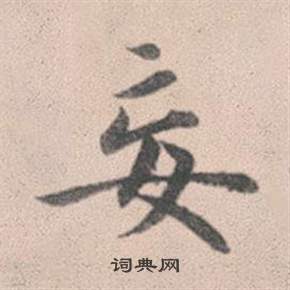 妄
词典网